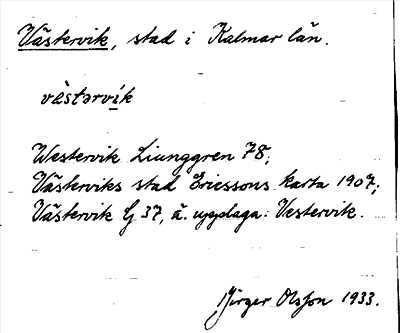 Västervik, stad i Kalmar län.
västərvik
Westervik Liunggren 78;
Västerviks stad Ericssons karta 1907;
Västervik G 37, ä. upplaga: Vestervik.
Birger Olsson 1933.